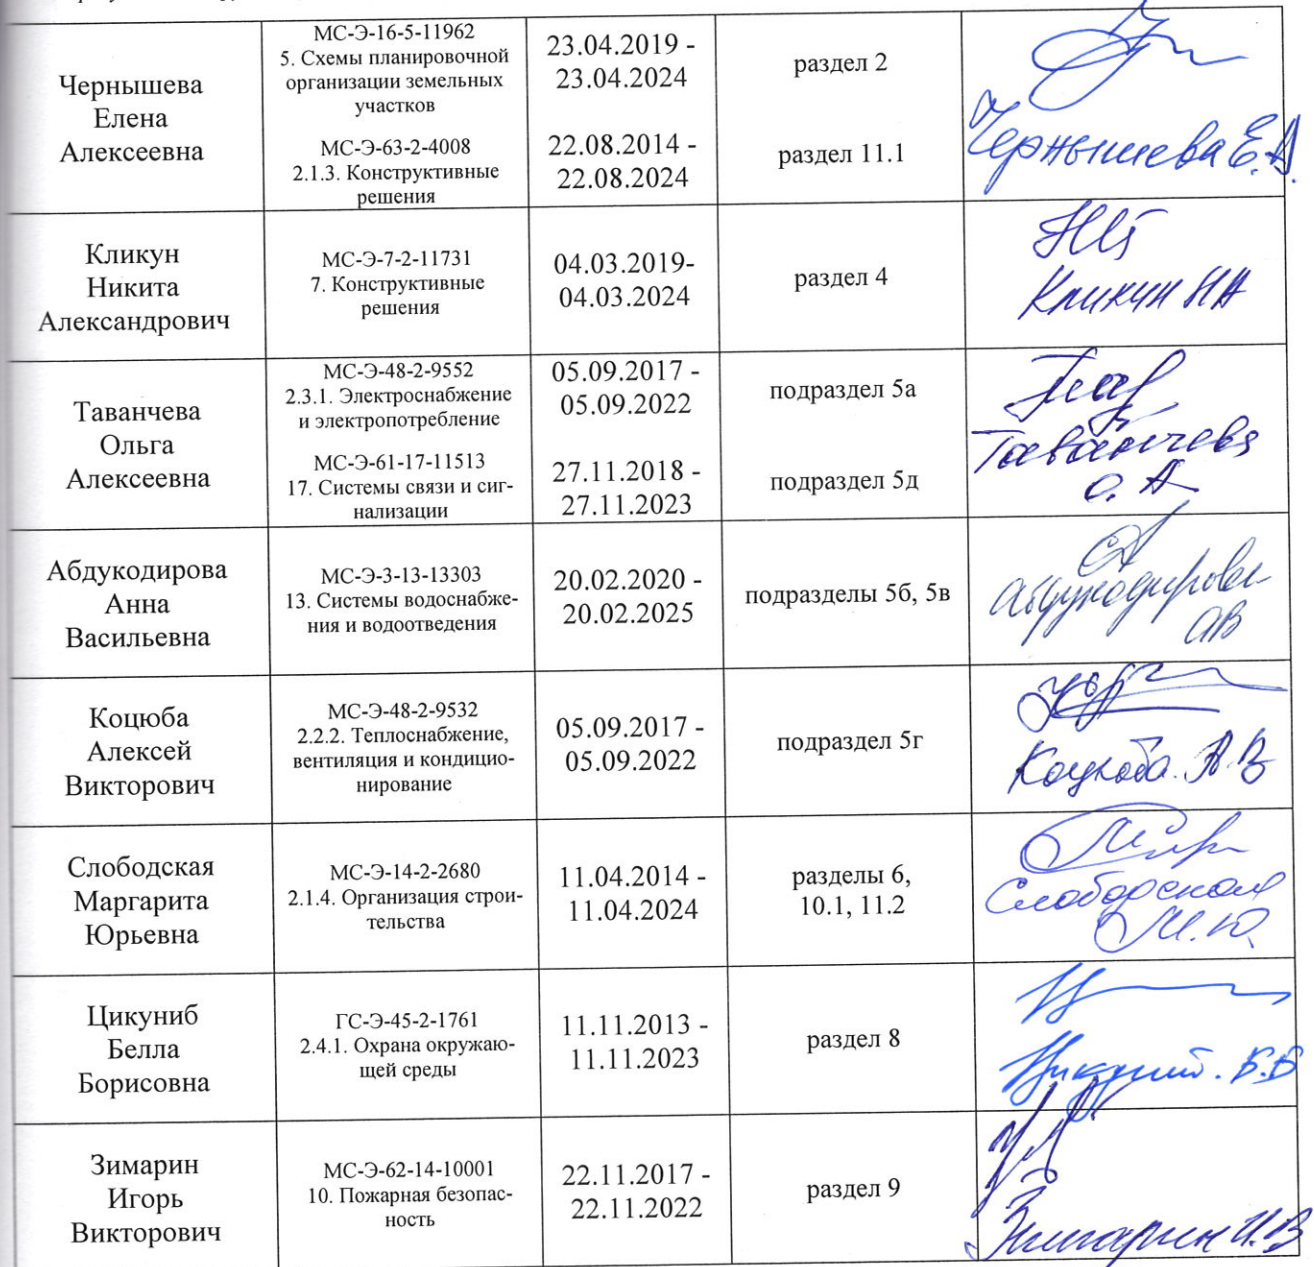 Чернышева
Елена
Алексеевна
МС-Э-16-5-11962
5. Схемы планировочной
организации земельных
участков
23.04.2019 -
23.04.2024
раздел 2
МС-Э-63-2-4008
2.1.3. Конструктивные
решения
22.08.2014 -
22.08.2024
раздел 11.1
Чернышева Е.А.
Кликун
Никита
Александрович
МС-Э-7-2-11731
7. Конструктивные
решения
04.03.2019-
04.03.2024
раздел 4
Кликун НА
Таванчева
Ольга
Алексеевна
МС-Э-48-2-9552
2.3.1. Электроснабжение
и электропотребление
05.09.2017 -
05.09.2022
подраздел 5а
МС-Э-61-17-11513
17. Системы связи и сиг-
нализации
27.11.2018 -
27.11.2023
подраздел 5д
Таванчева
О. А
Абдукодирова
Анна
Васильевна
МС-Э-3-13-13303
13. Системы водоснабже-
ния и водоотведения
20.02.2020 -
20.02.2025
подразделы 5б, 5в
Абдукодирова
АВ
Коцюба
Алексей
Викторович
МС-Э-48-2-9532
2.2.2. Теплоснабжение,
вентиляция и кондицио-
нирование
05.09.2017 -
05.09.2022
подраздел 5г
Коцюба. А.В
Слободская
Маргарита
Юрьевна
МС-Э-14-2-2680
2.1.4. Организация строи-
тельства
11.04.2014 -
11.04.2024
разделы 6,
10.1, 11.2
Слободская
М.Ю.
Цикуниб
Белла
Борисовна
ГС-Э-45-2-1761
2.4.1. Охрана окружаю-
щей среды
11.11.2013 -
11.11.2023
раздел 8
Цикуниб. Б.Б
Зимарин
Игорь
Викторович
МС-Э-62-14-10001
10. Пожарная безопас-
ность
22.11.2017 -
22.11.2022
раздел 9
Зимарин И.В